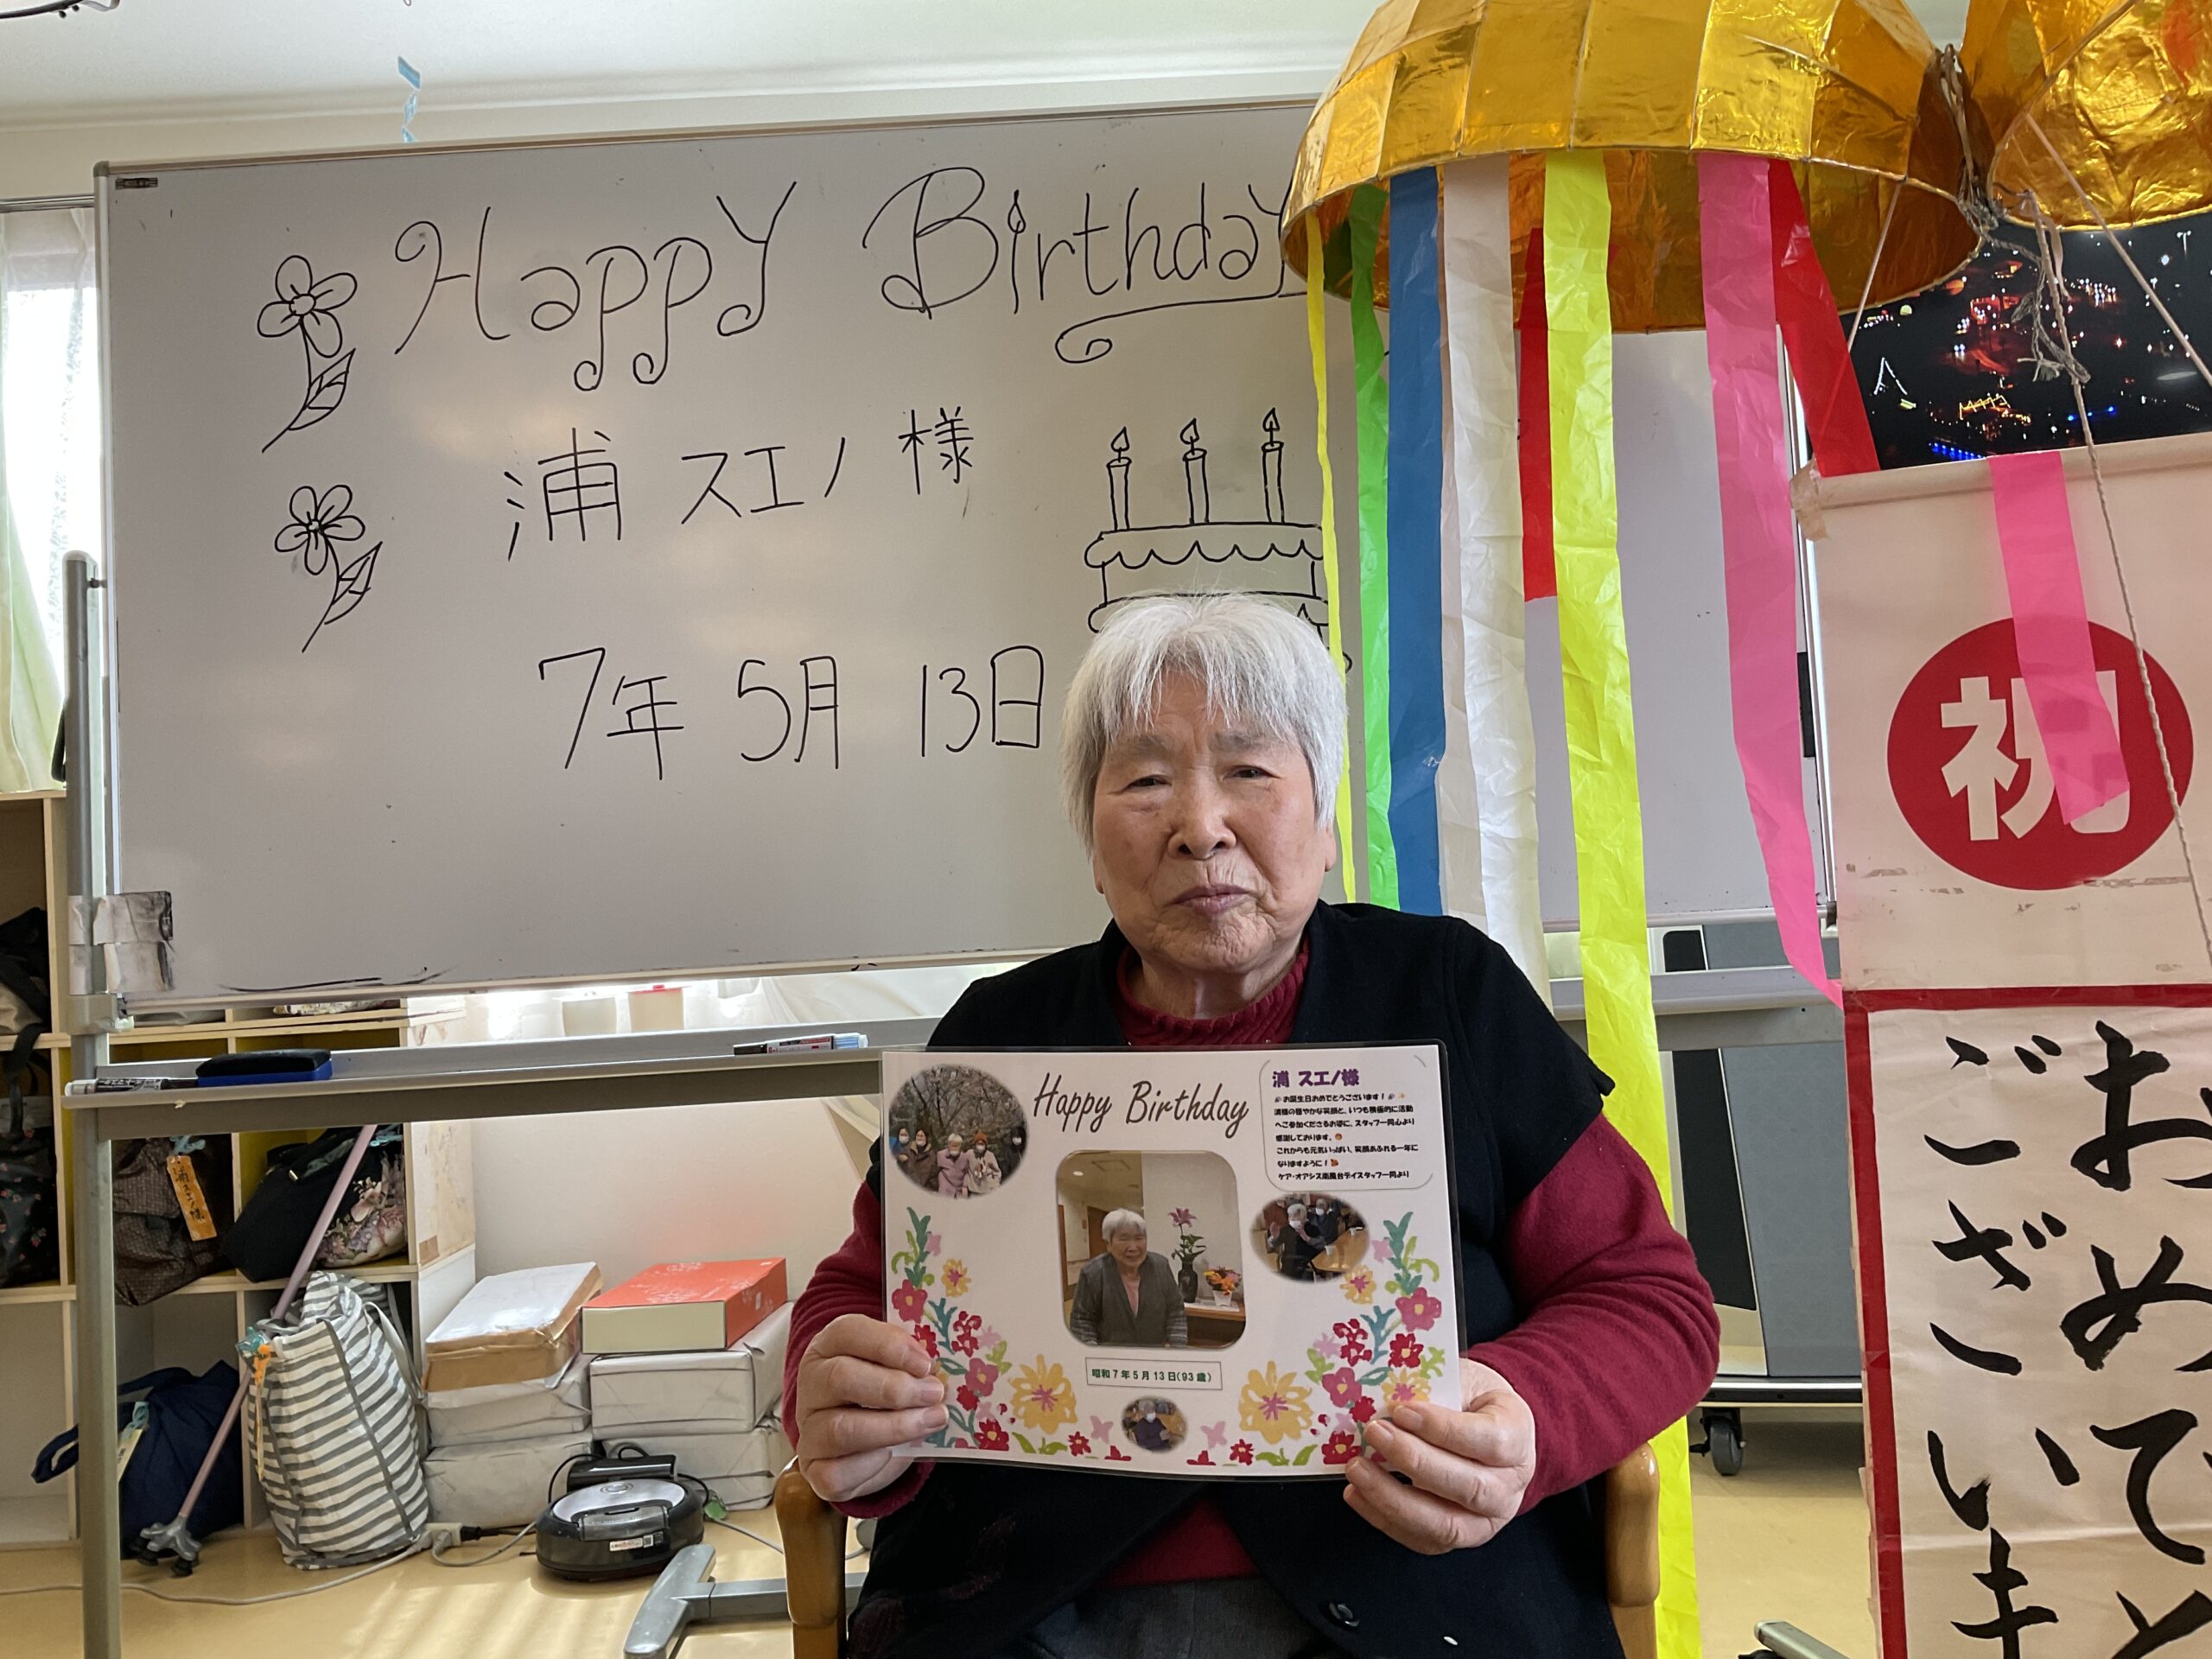 Happy Birthday
浦 スエノ 様
7年 5月 13日
祝
おめでと
ございま
Happy Birthday
浦 スエノ様
お誕生日おめでとうございます！
浦様の穏やかな笑顔と、いつも積極的に活動
へご参加くださるお姿に、スタッフ一同心より
感謝しております。
これからも元気いっぱい、笑顔あふれる一年に
なりますように！
ケア・オアシス南風台デイスタッフ一同より
昭和7年5月13日(93歳)